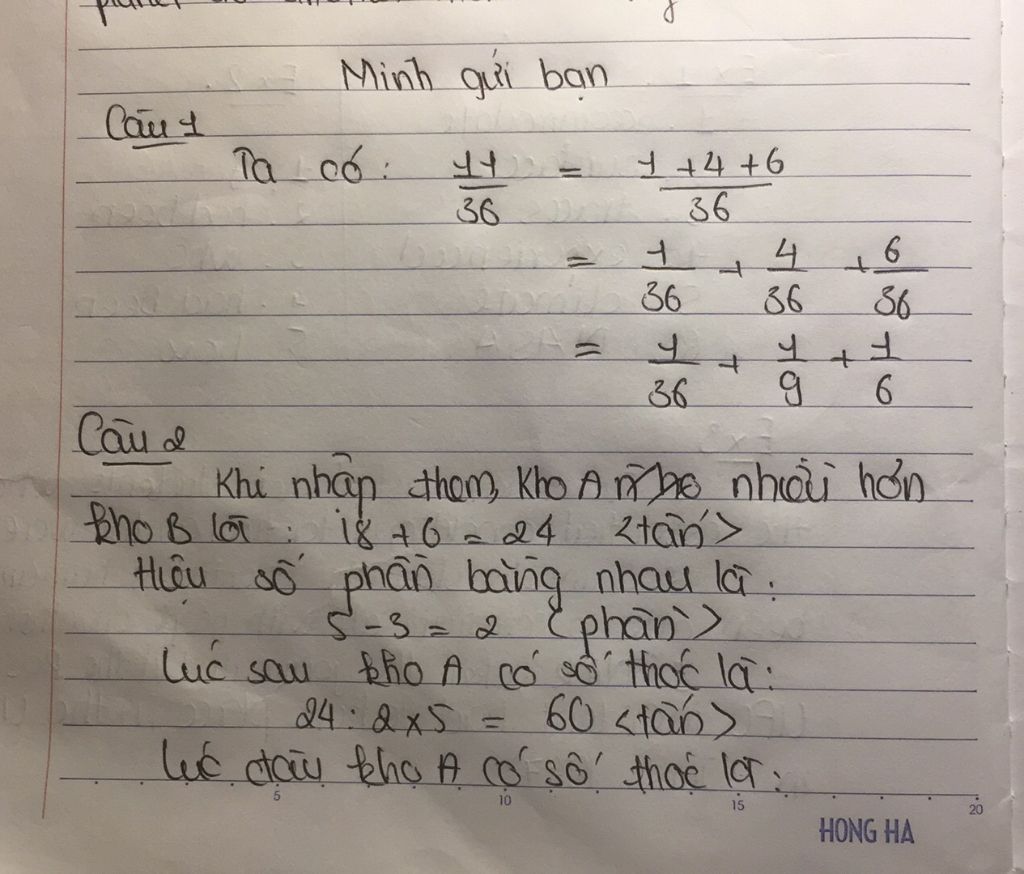 Mình gửi bạn
Câu 1
Ta có: 11/36 = 1+4+6/36
= 1/36 + 4/36 + 6/36
= 1/36 + 1/9 + 1/6
Câu 2
Khi nhận thêm, kho A nhiều hơn
kho B là: 18 + 6 = 24 <tấn>
Hiệu số phần bằng nhau là:
5 - 3 = 2 <phần>
Lúc sau kho A có số thóc là:
24 : 2 x 5 = 60 <tấn>
Lúc đầu kho A có số thóc là:
5 10 15 20
HONG HA